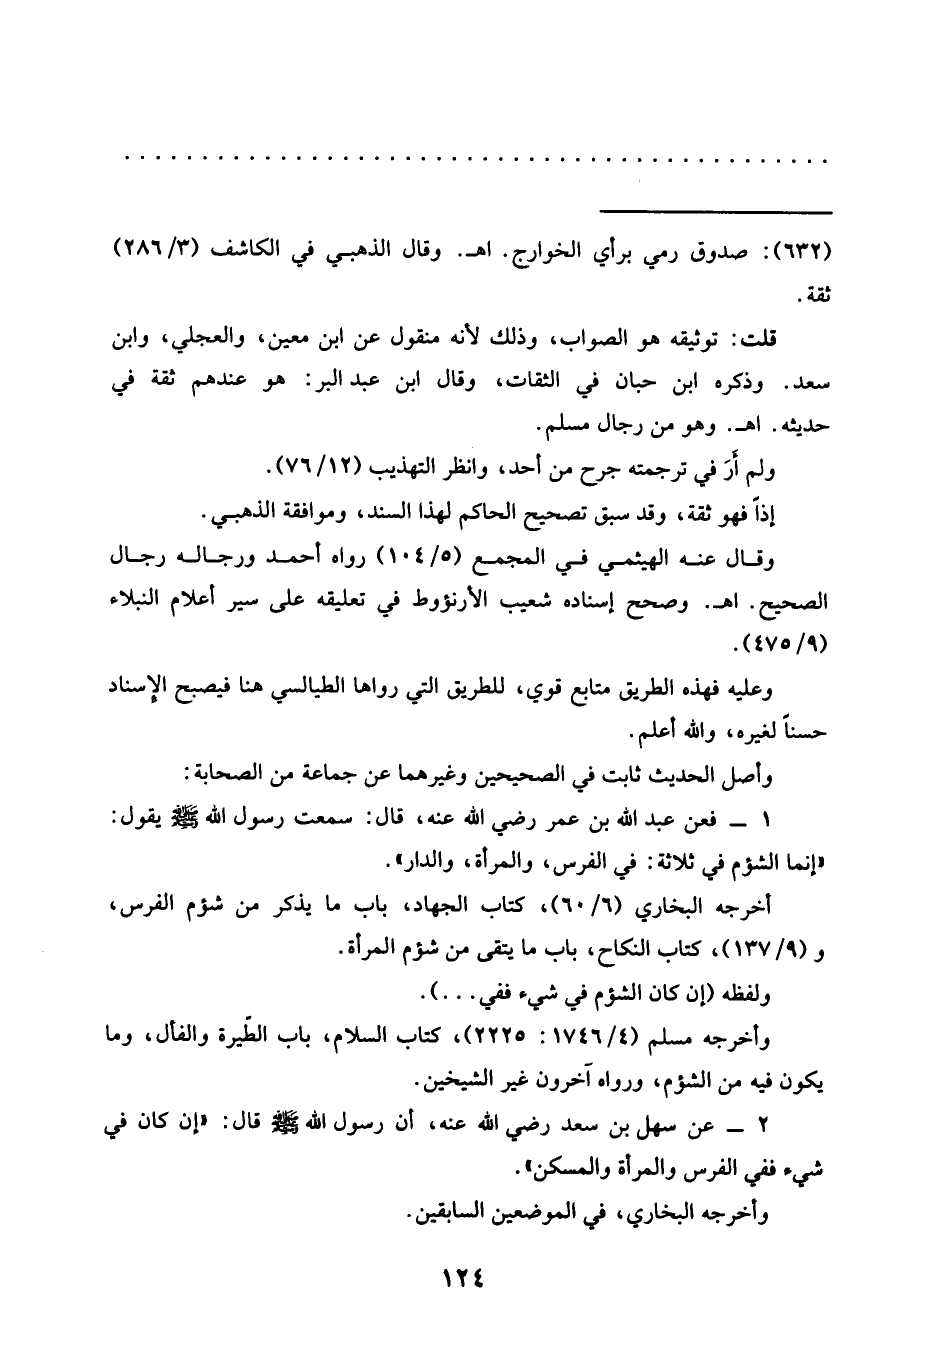 . . . . . . . . . . . . . . . . . . . . . . . . . . . . . . . . . . . . . . . . . . . . . .
(٦٣٢): صدوق رمي برأي الخوارج. اهـ. وقال الذهبي في الكاشف (٢٨٦/٣)
ثقة.
قلت: توثيقه هو الصواب، وذلك لأنه منقول عن ابن معين، والعجلي، وابن
سعد. وذكره ابن حبان في الثقات، وقال ابن عبد البر: هو عندهم ثقة في
حديثه. اهـ. وهو من رجال مسلم.
ولم أَرَ في ترجمته جرح من أحد، وانظر التهذيب (٧٦/١٢).
إذاً فهو ثقة، وقد سبق تصحيح الحاكم لهذا السند، وموافقة الذهبي.
وقال عنه الهيثمي في المجمع (١٠٤/٥) رواه أحمد ورجاله رجال
الصحيح. اهـ. وصحح إسناده شعيب الأرنؤوط في تعليقه على سير أعلام النبلاء
(٤٧٥/٩).
وعليه فهذه الطريق متابع قوي، للطريق التي رواها الطيالسي هنا فيصبح الإسناد
حسناً لغيره، والله أعلم.
وأصل الحديث ثابت في الصحيحين وغيرهما عن جماعة من الصحابة:
١ ــ فعن عبد الله بن عمر رضي الله عنه، قال: سمعت رسول الله ﷺ يقول:
«إنما الشؤم في ثلاثة: في الفرس، والمرأة، والدار».
أخرجه البخاري (٦٠/٦)، كتاب الجهاد، باب ما يذكر من شؤم الفرس،
و (١٣٧/٩)، كتاب النكاح، باب ما يتقى من شؤم المرأة.
ولفظه (إن كان الشؤم في شيء ففي...).
وأخرجه مسلم (١٧٤٦/٤: ٢٢٢٥)، كتاب السلام، باب الطّيرة والفأل، وما
يكون فيه من الشؤم، ورواه آخرون غير الشيخين.
٢ ــ عن سهل بن سعد رضي الله عنه، أن رسول الله ﷺ قال: «إن كان في
شيء ففي الفرس والمرأة والمسكن».
وأخرجه البخاري، في الموضعين السابقين.
١٢٤